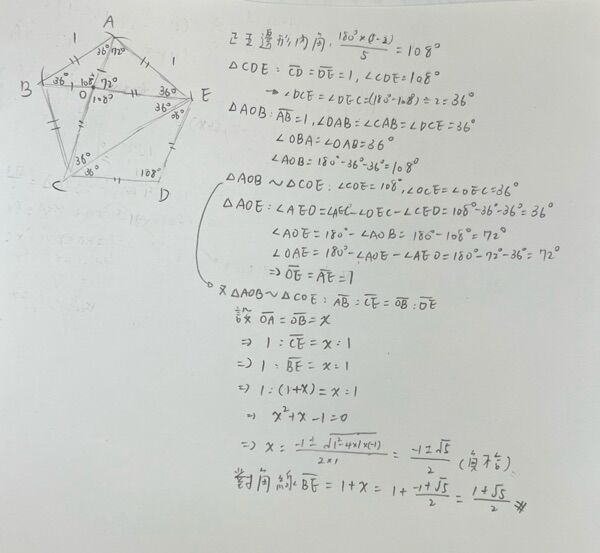 A
1
36° 72°
1
B
36°
108° 72°
O
108°
36°
E
36°
36°
36°
36°
108°
C
D
正五邊形內角, 180°×(5-2)/5 = 108°
△CDE: CD = DE = 1, ∠CDE = 108°
→ ∠DCE = ∠DEC = (180-108) ÷ 2 = 36°
△AOB: AB = 1, ∠OAB = ∠CAB = ∠DCE = 36°
∠OBA = ∠OAB = 36°
∠AOB = 180° - 36° - 36° = 108°
△AOB ~ △CDE: ∠CDE = 108°, ∠DCE = ∠DEC = 36°
△AOE: ∠AEO = ∠AED - ∠OEC - ∠CED = 108° - 36° - 36° = 36°
∠AOE = 180° - ∠AOB = 180° - 108° = 72°
∠OAE = 180° - ∠AOE - ∠AEO = 180° - 72° - 36° = 72°
⇒ OE = AE = 1
又 △AOB ~ △CDE: AB : CE = OB : DE
設 OA = OB = x
⇒ 1 : CE = x : 1
⇒ 1 : BE = x : 1
⇒ 1 : (1+x) = x : 1
⇒ x² + x - 1 = 0
⇒ x = (-1 ± √(1² - 4×1×(-1)))/(2×1) = (-1 ± √5)/2 (負不合)
對角線 BE = 1 + x = 1 + (-1+√5)/2 = (1+√5)/2 #